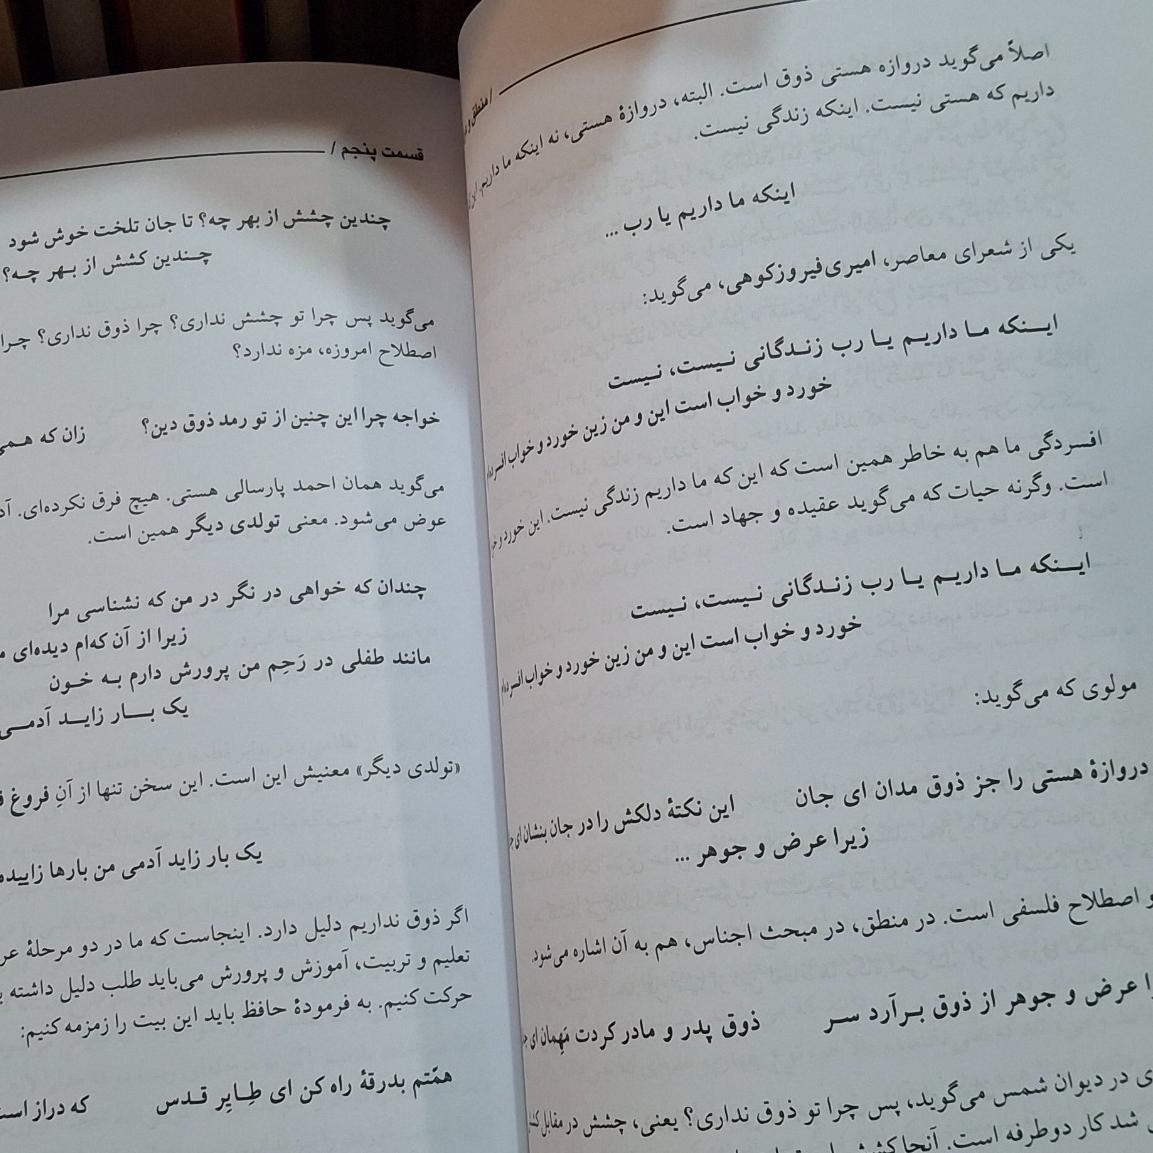 / منطق و
اصلاً می‌گوید دروازه هستی ذوق است. البته، دروازهٔ هستی، نه اینکه ما داریم. این
داریم که هستی نیست. اینکه زندگی نیست.
اینکه ما داریم یا رب ...
یکی از شعرای معاصر، امیری‌فیروزکوهی، می‌گوید:
ایـنکه مـا داریـم یـا رب زنـدگانی نـیست، نـیست
خورد و خواب است این و من زین خورد و خواب افسرده‌ام
افسردگی ما هم به خاطر همین است که این که ما داریم زندگی نیست. این خورد و
است. وگرنه حیات که می‌گوید عقیده و جهاد است.
ایـنکه مـا داریـم یـا رب زنـدگانی نـیست، نـیست
خورد و خواب است این و من زین خورد و خواب افسرده‌ام
مولوی که می‌گوید:
دروازهٔ هستی را جز ذوق مدان ای جان این نکتهٔ دلکش را در جان بنشان ای
زیرا عرض و جوهر ...
و اصطلاح فلسفی است. در منطق، در مبحث اجناس، هم به آن اشاره می‌شود.
عرض و جوهر از ذوق بـرآرد سـر ذوق پدر و مادر کردت مَهِمان ای
در دیوان شمس می‌گوید، پس چرا تو ذوق نداری؟ یعنی، چشش در مقابل
شد کار دوطرفه است. آنجا
قسمت پنجم /
چندین چشش از بهر چه؟ تا جان تلخت خوش شود
چـندین کشش از بـهر چـه؟
می‌گوید پس چرا تو چشش نداری؟ چرا ذوق نداری؟ چـرا
اصطلاح امروزه، مزه ندارد؟
خواجه چرا این چنین از تو رمد ذوق دین؟ زان که
می‌گوید همان احمد پارسالی هستی. هیچ فرق نکرده‌ای.
عوض می‌شود. معنی تولدی دیگر همین است.
چندان که خواهی در نگر در من که نشناسی مرا
زیرا از آن که‌ام دیده‌ای
مانند طفلی در رَحِم من پرورش دارم بـه خـون
یک بـار زایـد آدمـی
«تولدی دیگر» معنیش این است. این سخن تنها از آنِ فروغ
یک بار زاید آدمی من بارها
اگر ذوق نداریم دلیل دارد. اینجاست که ما در دو مرحلهٔ
تعلیم و تربیت، آموزش و پرورش می‌باید طلب دلیل داشته
حرکت کنیم. به فرمودهٔ حافظ باید این بیت را زمزمه کنیم:
همّتم بدرقهٔ راه کن ای طِـایِر قـدس که دراز است